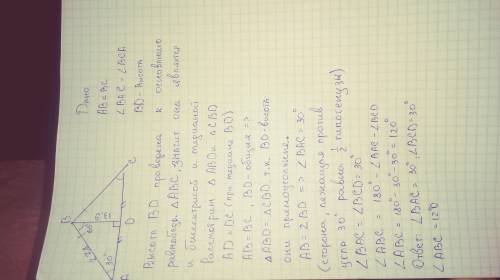 Дано
AB = BC
∠BAC = ∠BCA
BD - высота
B
60°
30°
A
D
C
Высота BD проведена к основанию
равнобедр. △ABC, значит она является
и биссектрисой и медианой
Рассмотрим △ABD и △CBD
AD = DC (при медиане BD)
AB = BC. BD - общая =>
△ABD = △CBD т.к. BD - высота
они прямоугольные.
AB = 2BD => ∠BAC = 30°
(сторона, лежащая против
угла 30° равна ½ гипотенузы)
∠BAC = ∠BCD = 30°
∠ABC = 180° - ∠BAC - ∠BCD
∠ABC = 180° - 30° - 30° = 120°
Ответ ∠BAC = 30°, ∠BCD = 30°
∠ABC = 120